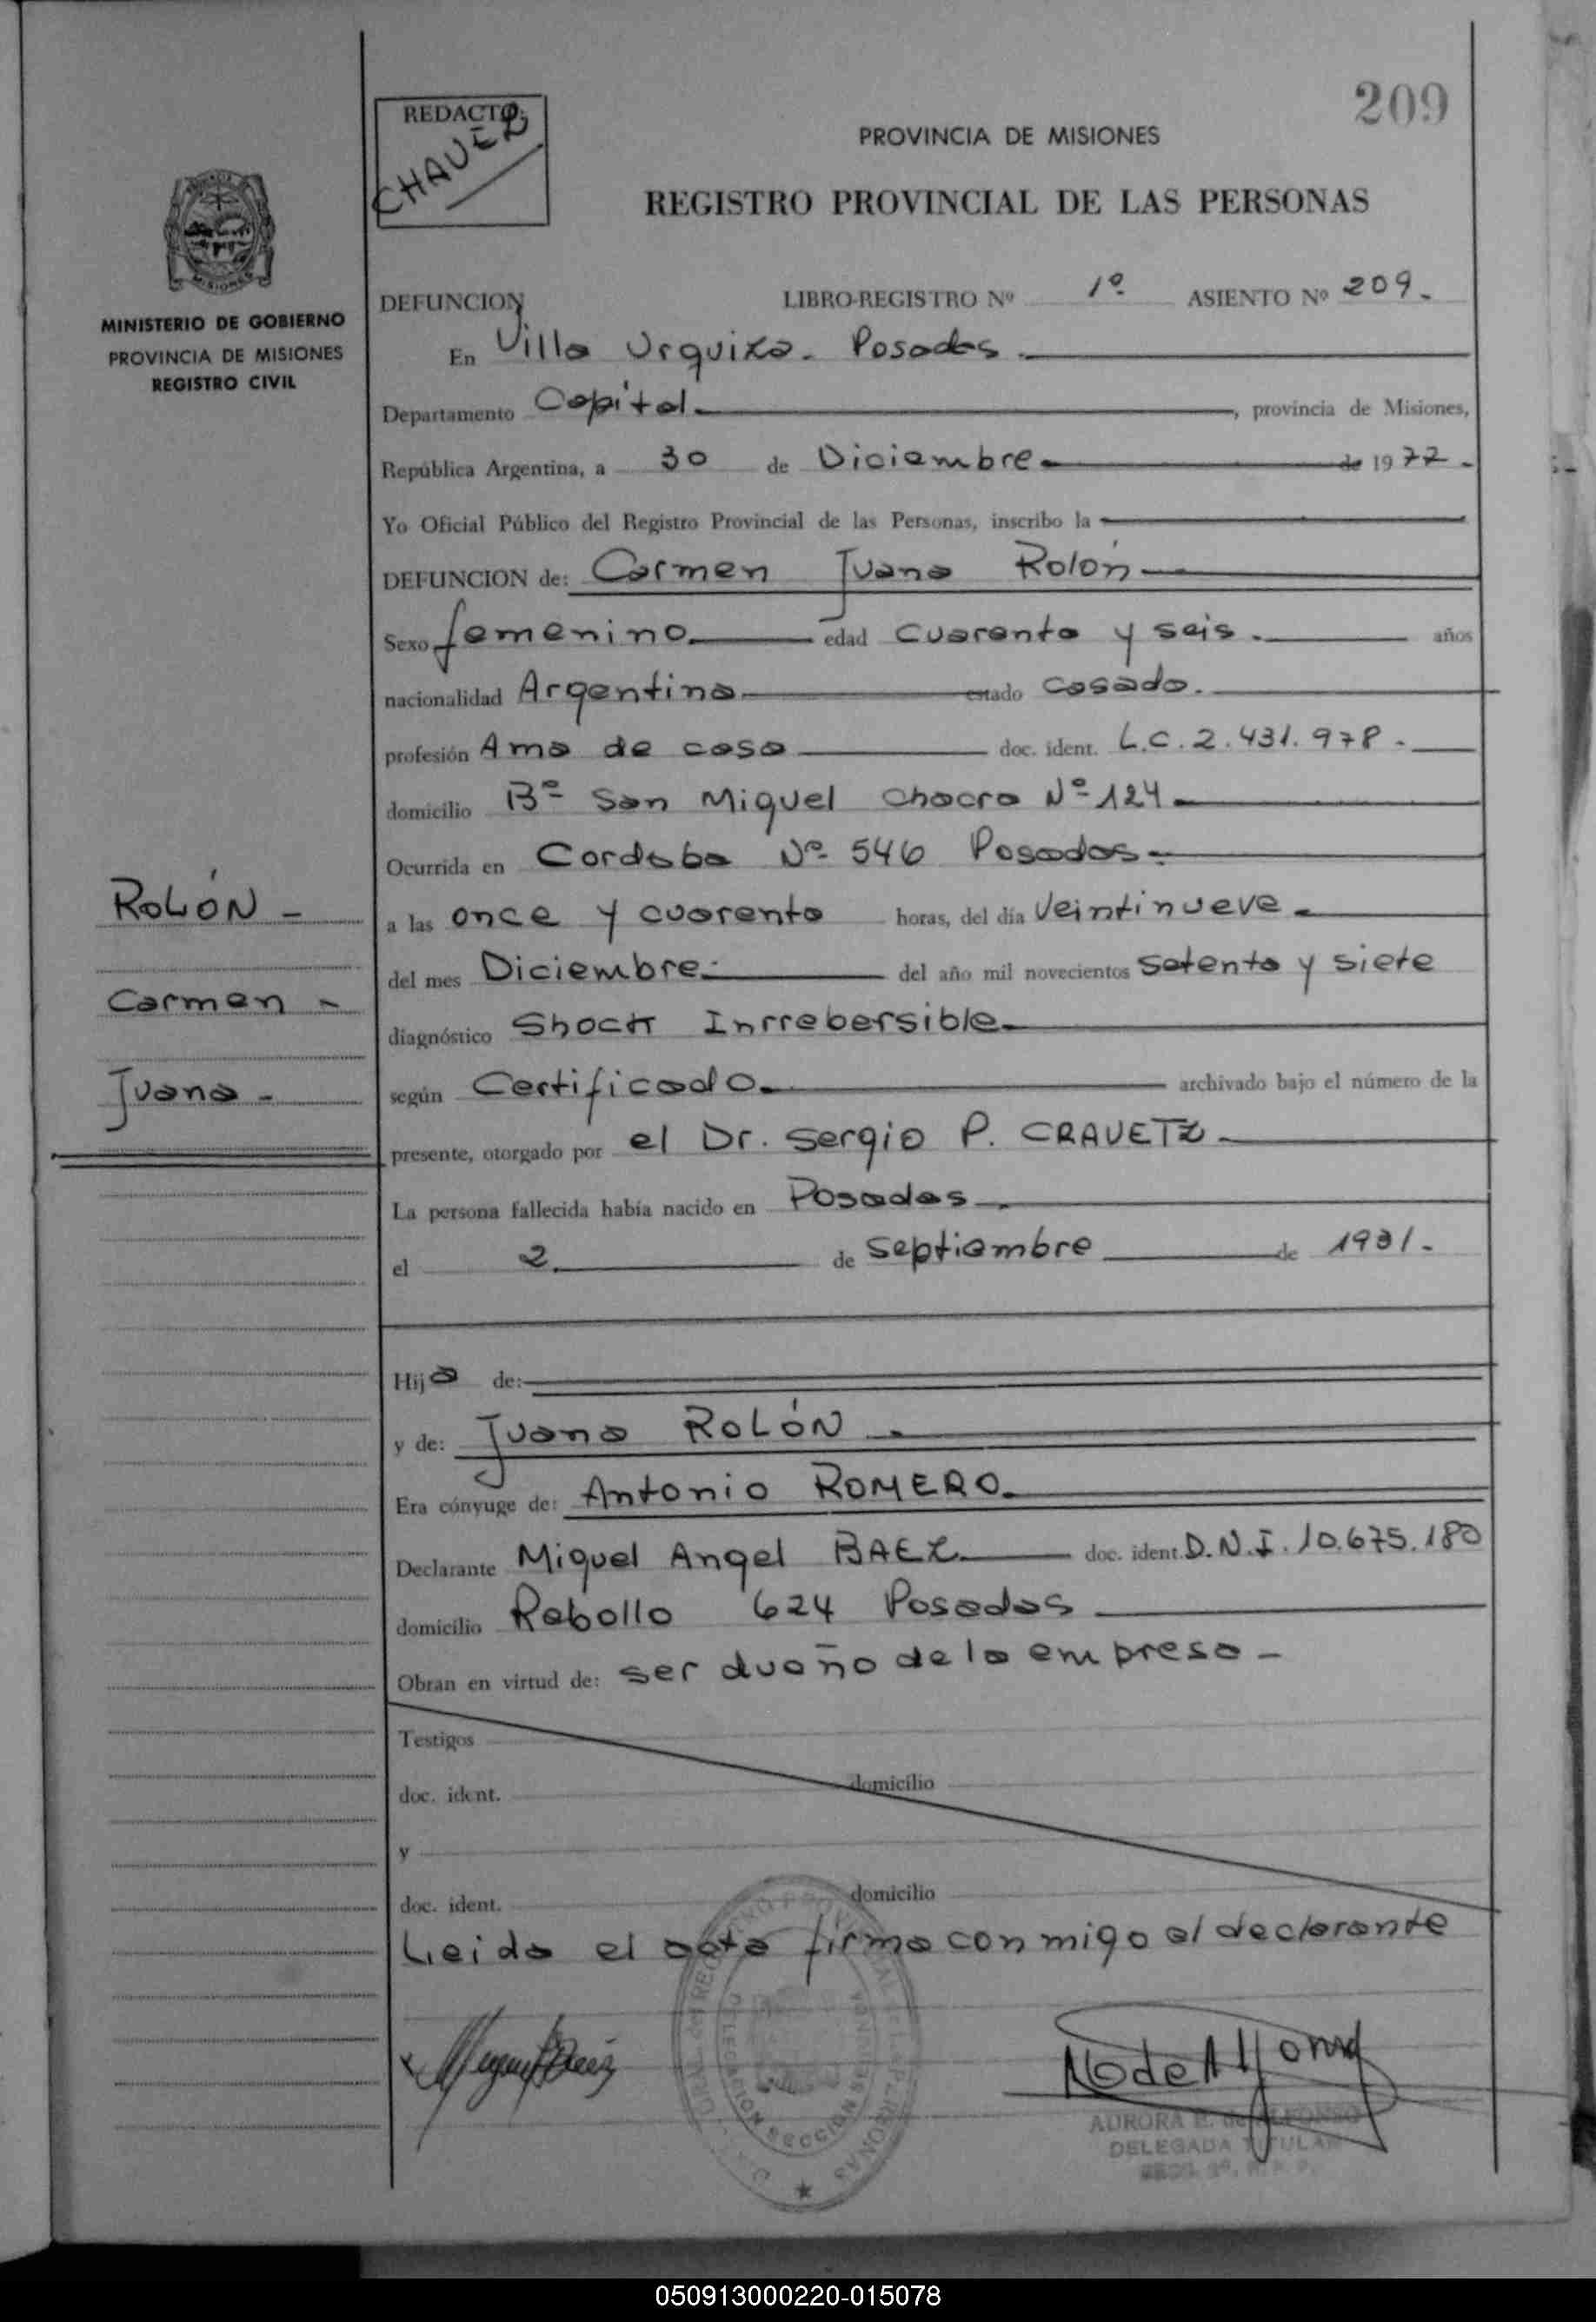 209
REDACTO:
CHAVEZ
PROVINCIA DE MISIONES
REGISTRO PROVINCIAL DE LAS PERSONAS
MISIONES
MINISTERIO DE GOBIERNO
PROVINCIA DE MISIONES
REGISTRO CIVIL
DEFUNCION LIBRO-REGISTRO Nº 1º ASIENTO Nº 209.
En Villa Urquiza. Posadas.
Departamento Capital. , provincia de Misiones,
República Argentina, a 30 de Diciembre de 1977.
Yo Oficial Público del Registro Provincial de las Personas, inscribo la
DEFUNCION de: Carmen Juana Rolón
Sexo femenino edad cuarenta y seis. años
nacionalidad Argentina estado casada.
profesión Ama de casa doc. ident. L.C. 2.431.978.
domicilio Bº San Miguel chacra Nº 124
Ocurrida en Cordoba Nº 546 Posadas.
a las once y cuarenta horas, del día veintinueve
del mes Diciembre. del año mil novecientos setenta y siete
diagnóstico Shock Inrrebersible
según Certificado. archivado bajo el número de la
presente, otorgado por el Dr. Sergio P. CRAVETZ
La persona fallecida había nacido en Posadas
el 2 de septiembre de 1931.
Hija de:
y de: Juana ROLÓN
Era cónyuge de: Antonio ROMERO.
Declarante Miguel Angel BAEZ doc. ident. D.N.I. 10.675.180
domicilio Rebollo 624 Posadas
Obran en virtud de: ser dueño de la empresa -
Testigos
doc. ident. domicilio
y
doc. ident. domicilio
Leida el acta firma conmigo el declarante
ROLÓN -
Carmen -
Juana -
DELEGACION SECCION
AURORA de ALFONSO
DELEGADA TITULAR
050913000220-015078